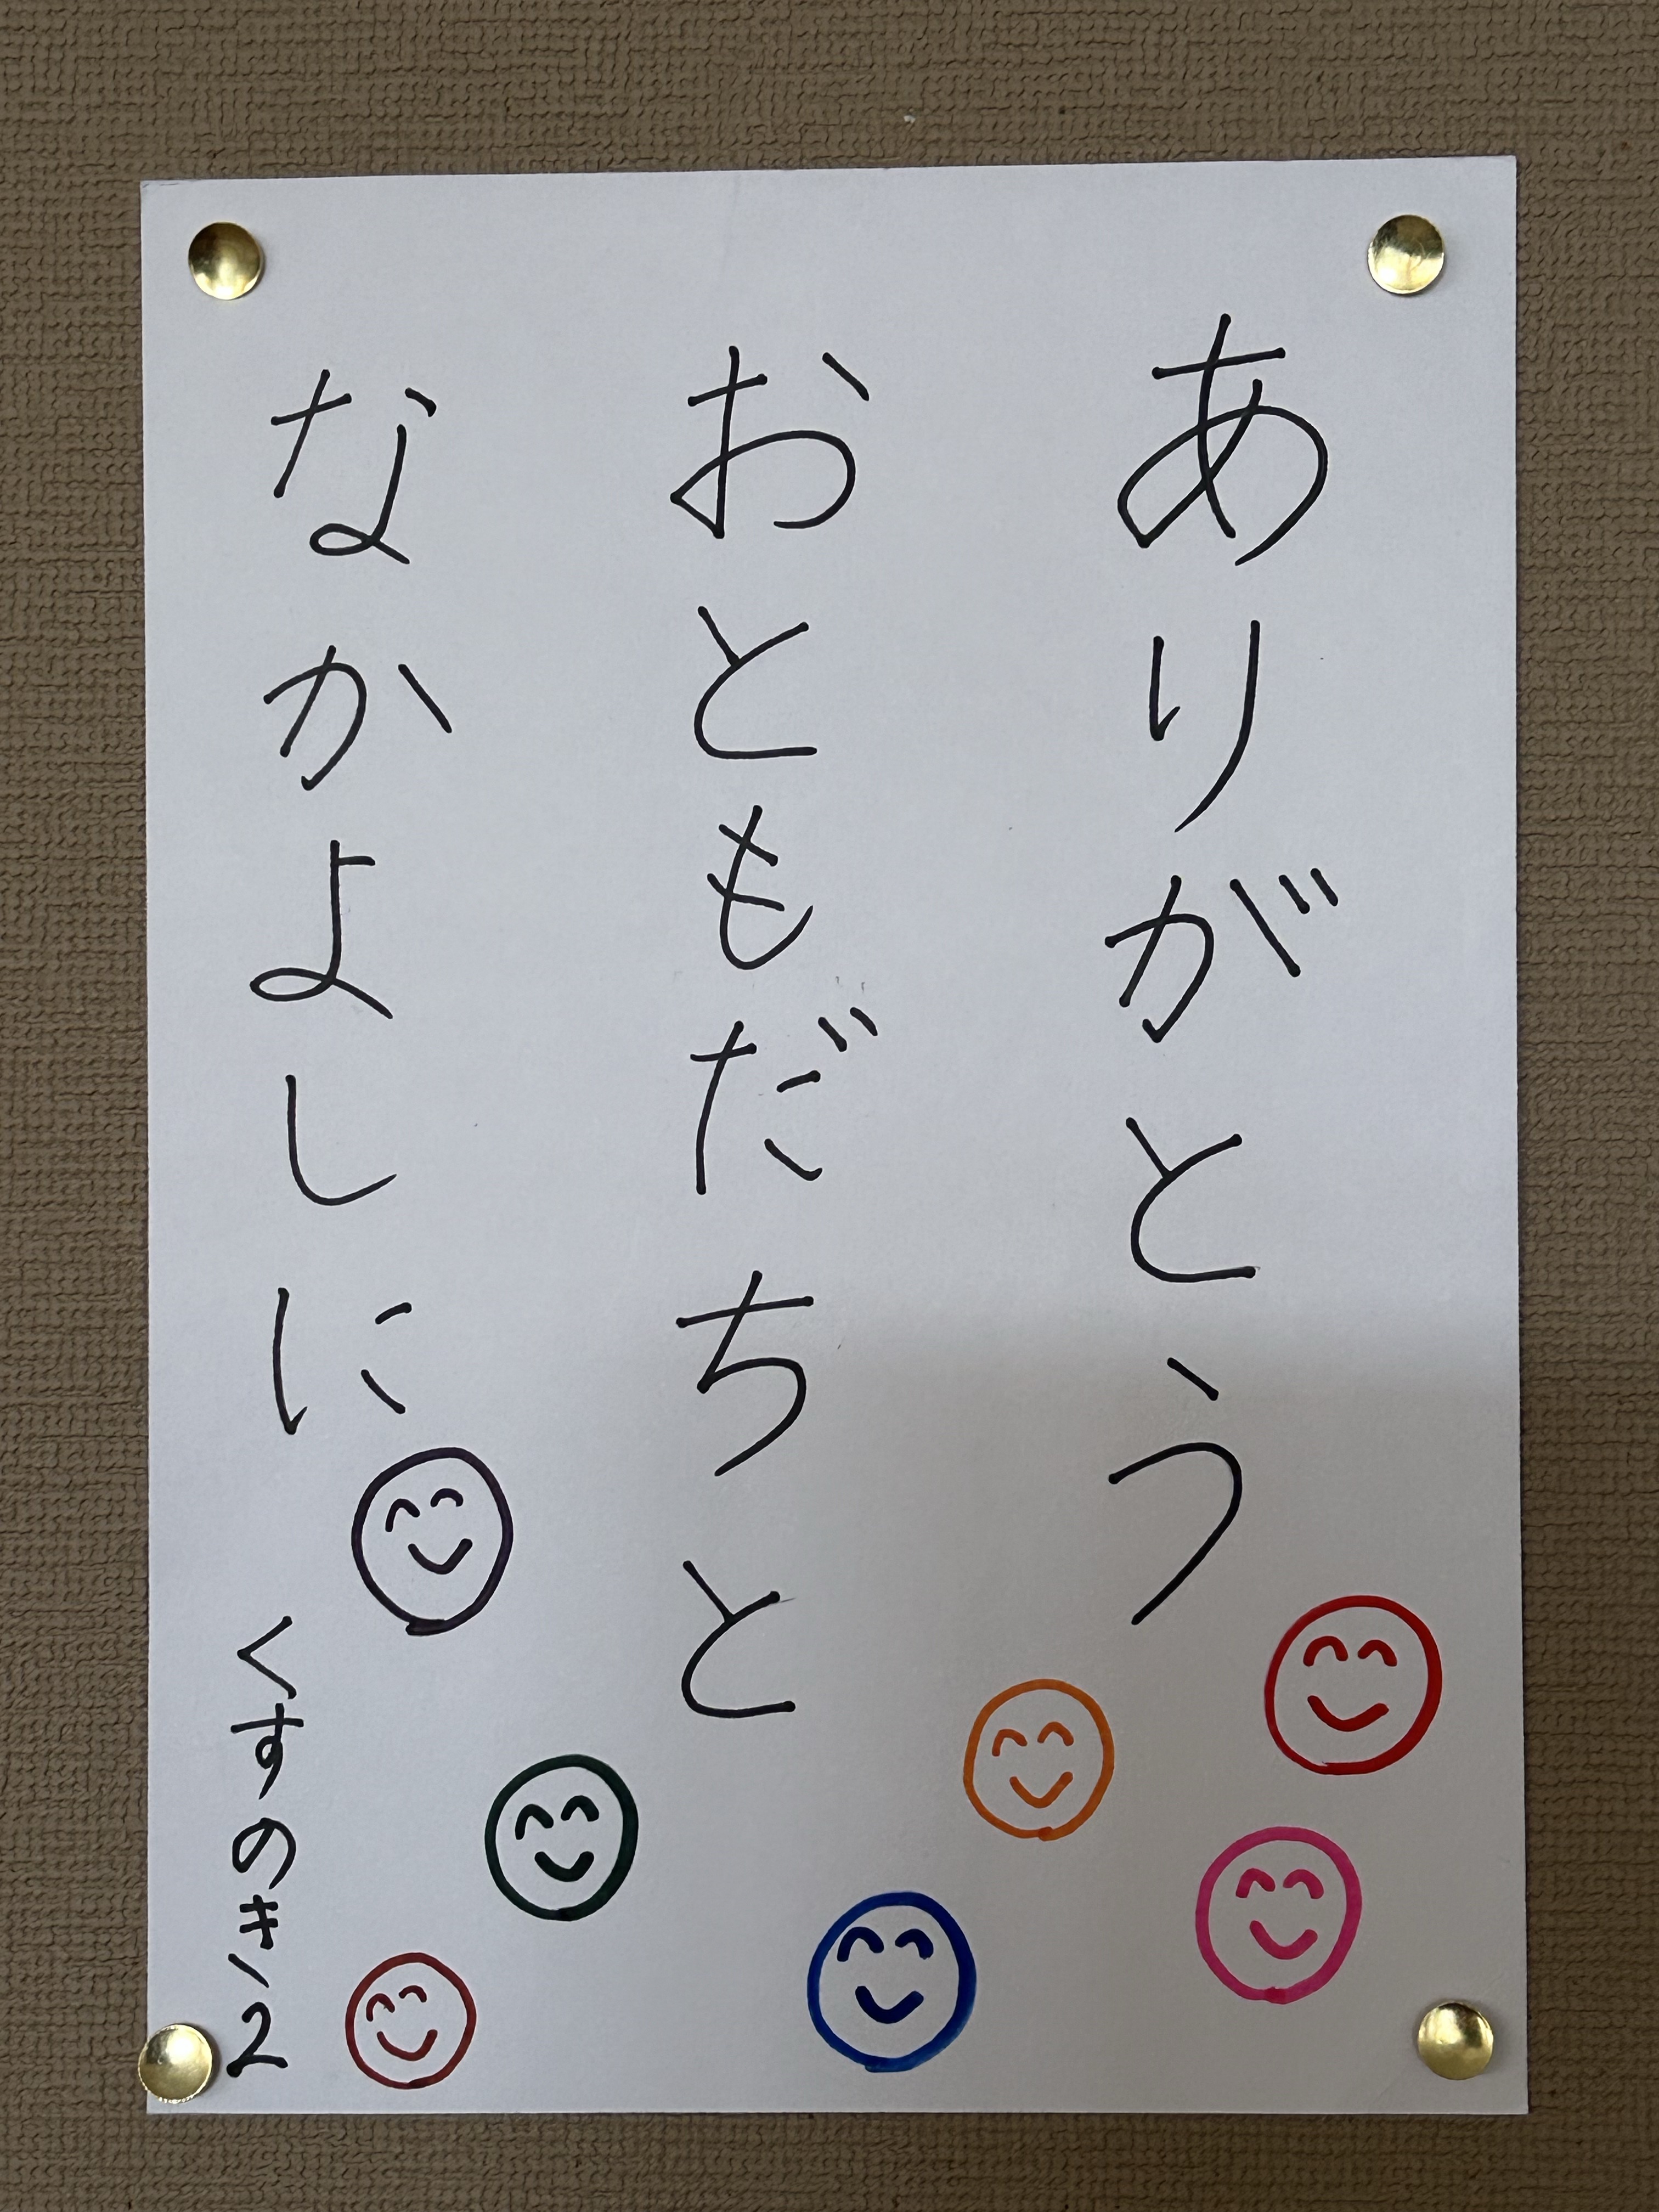 ありがとう
おともだちと
なかよしに
くすのき2